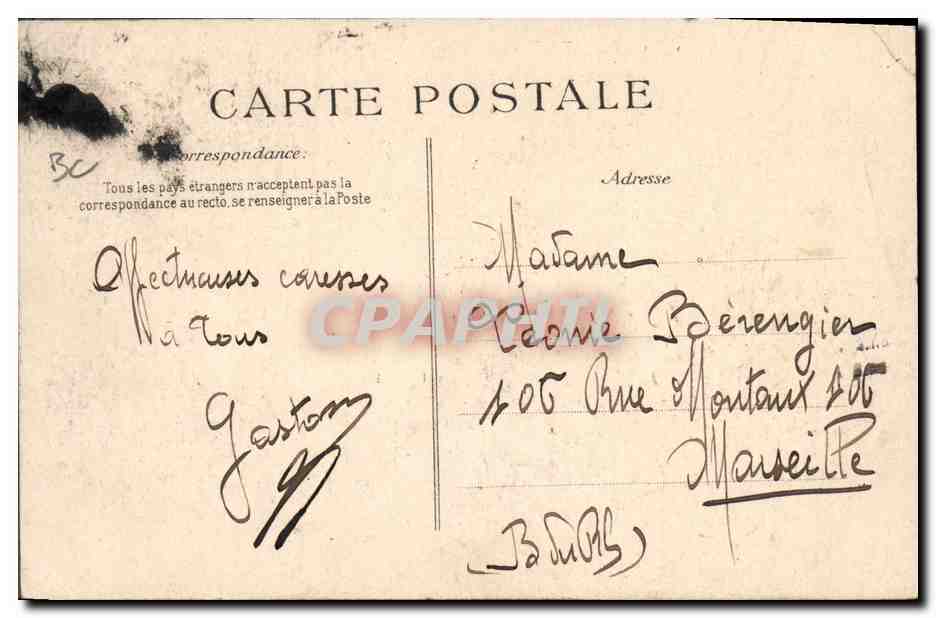 CARTE POSTALE
BC
orrespondance:
Tous les pays étrangers n'acceptent pas la
correspondance au recto, se renseigner à la Poste
Affectueuses caresses
à tous
Gaston
Adresse
Madame
Léonie Bérengier
106 Rue Montaux 106
Marseille
(B du Rh)
CPAPHIL